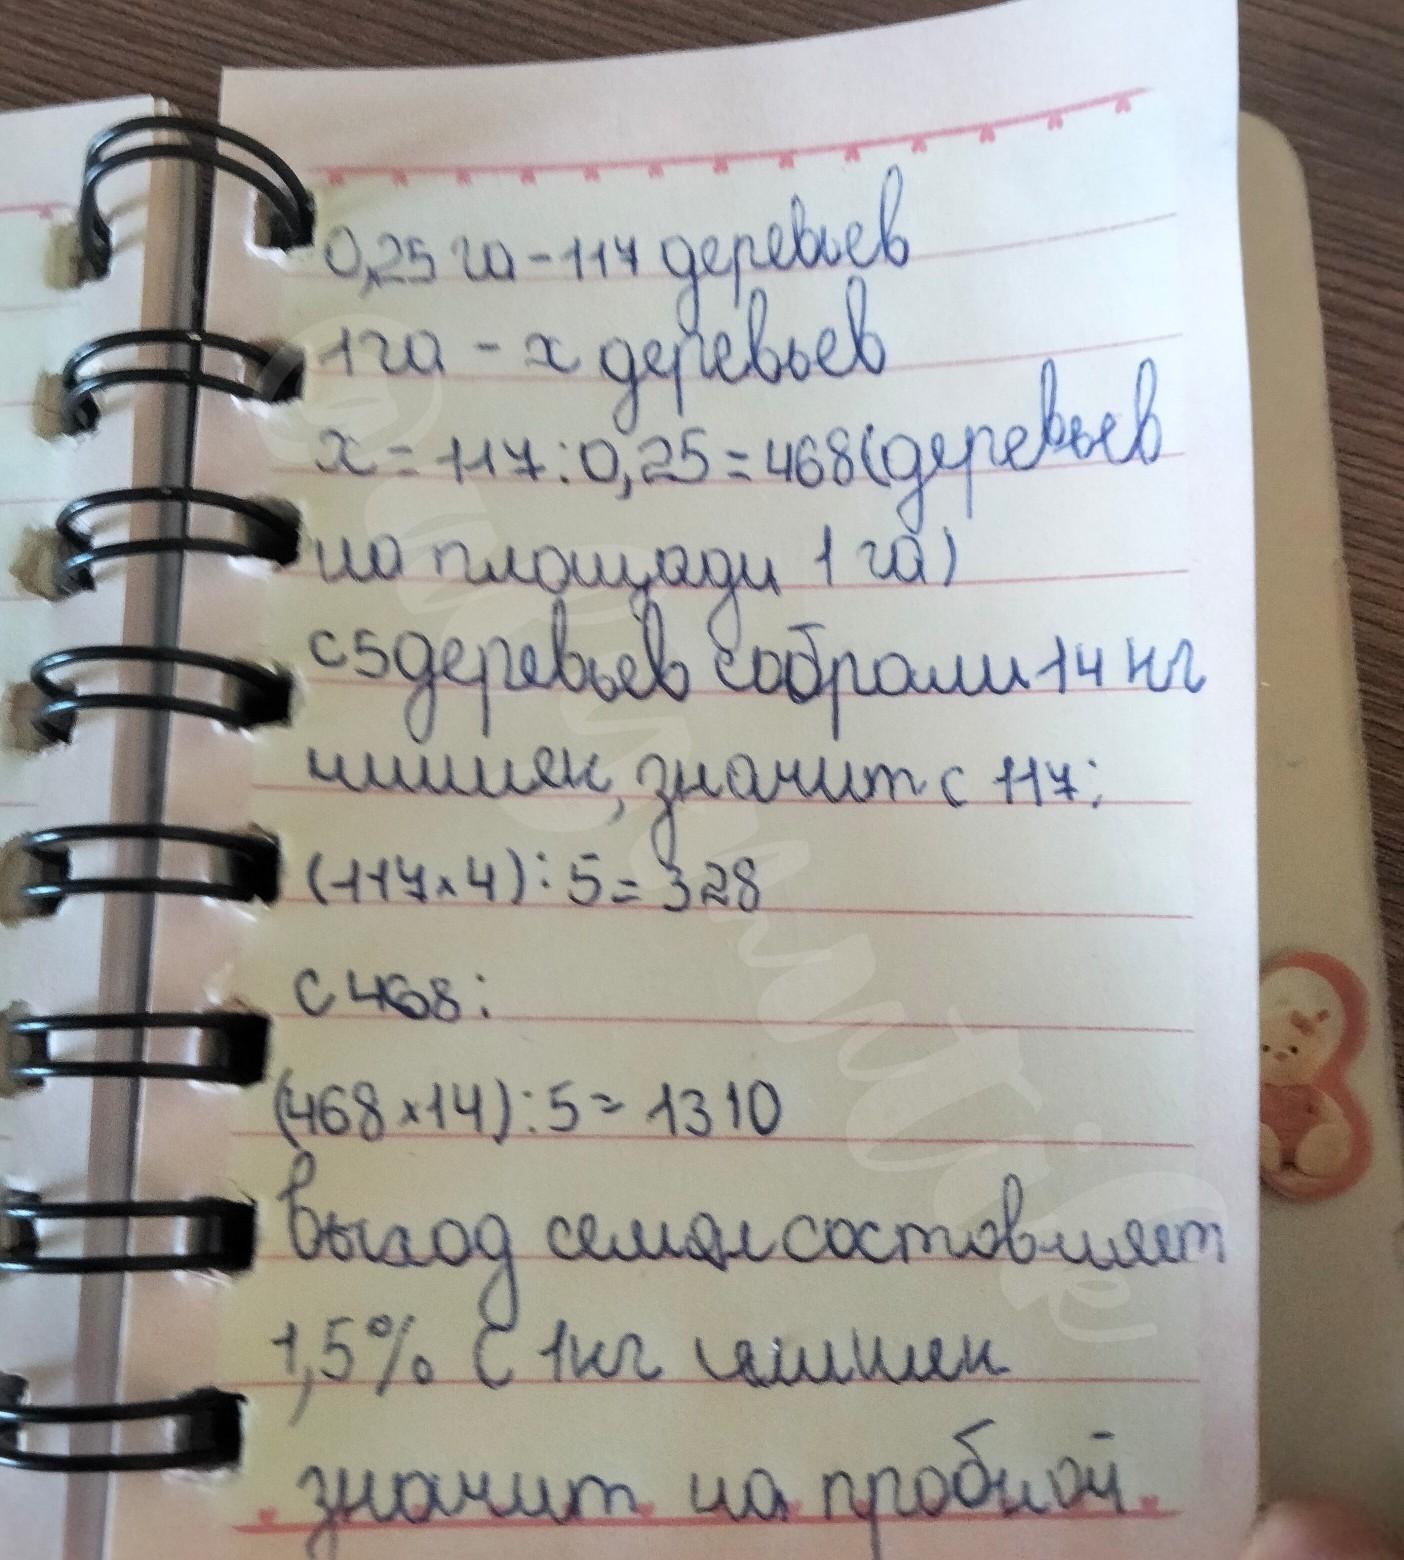 0,25 га - 117 деревьев
1 га - х деревьев
х = 117 : 0,25 = 468 (деревьев
на площади 1 га)
с 5 деревьев собрали 14 кг
шишек, значит с 117:
(117 х 4) : 5 = 328
с 468:
(468 х 14) : 5 = 1310
Выход семян составляет
1,5% С 1 кг шишек
значит на пробной